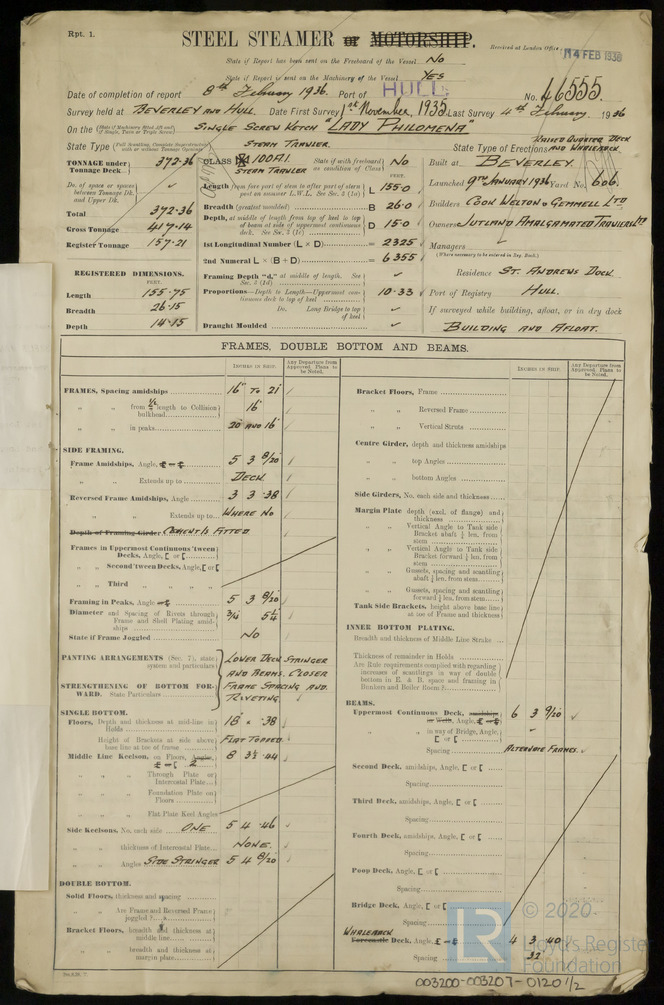 Rpt. 1.
STEEL STEAMER or MOTORSHIP.
Received at London Office 14 FEB 1936
State if Report has been sent on the Freeboard of the Vessel No
State if Report is sent on the Machinery of the Vessel Yes
Date of completion of report 8th February 1936. Port of HULL No. 46555.
Survey held at BEVERLEY AND HULL. Date First Survey 1st November, 1935. Last Survey 4th February 1936
On the (State if Machinery fitted Aft and if Single, Twin or Triple Screw) SINGLE SCREW KETCH "LADY PHILOMENA"
State Type (Full Scantling, Complete Superstructure with or without Tonnage Openings) STEAM TRAWLER.
State Type of Erections RAISED QUARTER DECK AND WHALEBACK
TONNAGE under Tonnage Deck 372.36
Do. of space or spaces between Tonnage Dk. and Upper Dk.
Total 372.36
Gross Tonnage 417.14
Register Tonnage 157.21
REGISTERED DIMENSIONS.
FEET.
Length 155.75
Breadth 26.15
Depth 14.15
CLASS 100A1. STEAM TRAWLER State if with freeboard as condition of Class No
FEET.
Length (from fore part of stem to after part of stern post on summer L.W.L. See Sec. 3 (1a)) L 155.0
Breadth (greatest moulded) B 26.0
Depth, at middle of length from top of keel to top of beam at side of uppermost continuous deck. See Sec. 3 (1c) D 15.0
1st Longitudinal Number (L × D) = 2325
2nd Numeral L × (B + D) = 6355
Framing Depth "d," at middle of length. See Sec. 3 (1d)
Proportions—Depth to Length—Uppermost continuous deck to top of keel 10.33
Do. Long Bridge to top of keel
Draught Moulded
Built at BEVERLEY.
Launched 9TH JANUARY 1936 Yard No. 606.
Builders COOK WELTON & GEMMELL LTD
Owners JUTLAND AMALGAMATED TRAWLERS LTD
Managers
(Where necessary to be entered in Reg. Book.)
Residence ST. ANDREWS DOCK
Port of Registry HULL.
If surveyed while building, afloat, or in dry dock
BUILDING AND AFLOAT.
FRAMES, DOUBLE BOTTOM AND BEAMS.
INCHES IN SHIP.
Any Departure from Approved Plans to be Noted.
FRAMES, Spacing amidships 16" TO 21"
" " from ½ length to Collision bulkhead 16"
" " in peaks 20 AND 16"
SIDE FRAMING.
Frame Amidships, Angle, [ or [ 5 3 8/20
" " Extends up to DECK
Reversed Frame Amidships, Angle 3 3 .38
" " Extends up to WHERE NO
Depth of Framing Girder CEMENT IS FITTED
Frames in Uppermost Continuous 'tween Decks, Angle, [ or [
" " Second 'tween Decks, Angle, [ or [
" " Third " " " "
Framing in Peaks, Angle or [ 5 3 8/20
Diameter and Spacing of Rivets through Frame and Shell Plating amidships 3/4 5¼
State if Frame Joggled NO
PANTING ARRANGEMENTS (Sec. 7), state system and particulars
STRENGTHENING OF BOTTOM FORWARD. State Particulars
LOWER DECK STRINGER
AND BEAMS. CLOSER
FRAME SPACING AND
RIVETING
SINGLE BOTTOM.
Floors, Depth and thickness at mid-line in Holds 18 × .38
Height of Brackets at side above base line at toe of frame FLAT TOPPED.
Middle Line Keelson, on Floors, Angles, [ or [ 8 3½ .44
" " Through Plate or Intercostal Plate
" " Foundation Plate on Floors
" " Flat Plate Keel Angles
Side Keelsons, No. each side ONE 5 4 .46
" " thickness of Intercostal Plate NONE.
" " Angles SIDE STRINGER 5 4 8/20
DOUBLE BOTTOM.
Solid Floors, thickness and spacing
" " Are Frame and Reversed Frame joggled?
Bracket Floors, breadth and thickness at middle line
" " breadth and thickness at margin plate
INCHES IN SHIP.
Any Departure from Approved Plans to be Noted.
Bracket Floors, Frame
" " Reversed Frame
" " Vertical Struts
Centre Girder, depth and thickness amidships
" " top Angles
" " bottom Angles
Side Girders, No. each side and thickness
Margin Plate depth (excl. of flange) and thickness
" " Vertical Angle to Tank side Bracket abaft ¼ len. from stem
" " Vertical Angle to Tank side Bracket forward ¼ len. from stem
" " Gussets, spacing and scantling abaft ¼ len. from stem
" " Gussets, spacing and scantling forward ¼ len. from stem
Tank Side Brackets, height above base line at toe of Frame and thickness
INNER BOTTOM PLATING.
Breadth and thickness of Middle Line Strake
Thickness of remainder in Holds
Are Rule requirements complied with regarding increases of scantlings in way of double bottom in E. & B. space and framing in Bunkers and Boiler Room?
BEAMS.
Uppermost Continuous Deck, amidships in Wells, Angle, [ or [ 6 3 9/20
" " in way of Bridge, Angle, [ or [
Spacing ALTERNATE FRAMES.
Second Deck, amidships, Angle, [ or [
Spacing
Third Deck, amidships, Angle, [ or [
Spacing
Fourth Deck, amidships, Angle, [ or [
Spacing
Poop Deck, Angle, [ or [
Spacing
Bridge Deck, Angle, [ or [
Spacing
WHALEBACK
Forecastle Deck, Angle, [ or [ 4 3 .40
Spacing 32"
LR
© 2020
Lloyd's Register
Foundation
003200-003207-0120 1/2